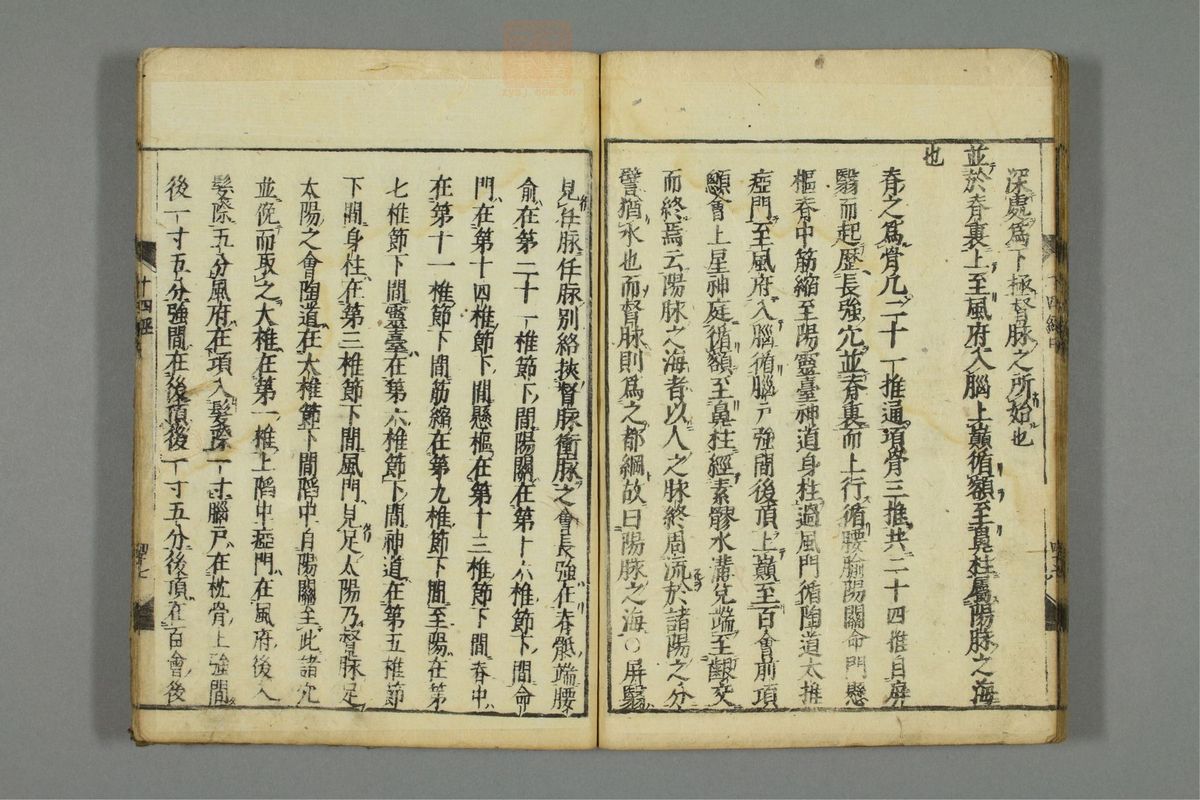 深處爲下極督脉之所始也
並於脊裏上至風府入腦上巔循額至鼻柱屬陽脉之海
也
脊之爲骨凡二十一椎通項骨三椎共二十四椎自屏
翳而起歷長強穴並脊裏而上行循腰腧陽關命門懸
樞脊中筋縮至陽靈臺神道身柱過風門循陶道大椎
瘂門至風府入腦循腦戶強間後頂上巔至百會前頂
顖會上星神庭循額至鼻柱經素髎水溝兌端至齦交
而終焉云陽脉之海者以人之脉終周流於諸陽之分
譬猶水也而督脉則爲之都綱故曰陽脉之海○屏翳
見任脉任脉別絡挾督脉衝脉之會長強在脊骶端腰
俞在第二十一椎節下間陽關在第十六椎節下間命
門在第十四椎節下間懸樞在第十三椎節下間脊中
在第十一椎節下間筋縮在第九椎節下間至陽在第
七椎節下間靈臺在第六椎節下間神道在第五椎節
下間身柱在第三椎節下間風門見足太陽乃督脉足
太陽之會陶道在大椎節下間陷中自陽關至此諸穴
並俛而取之大椎在第一椎上陷中瘂門在風府後入
髮際五分風府在項入髮際一寸腦戶在枕骨上強間
後一寸五分強間在後頂後一寸五分後頂在百會後
十四經